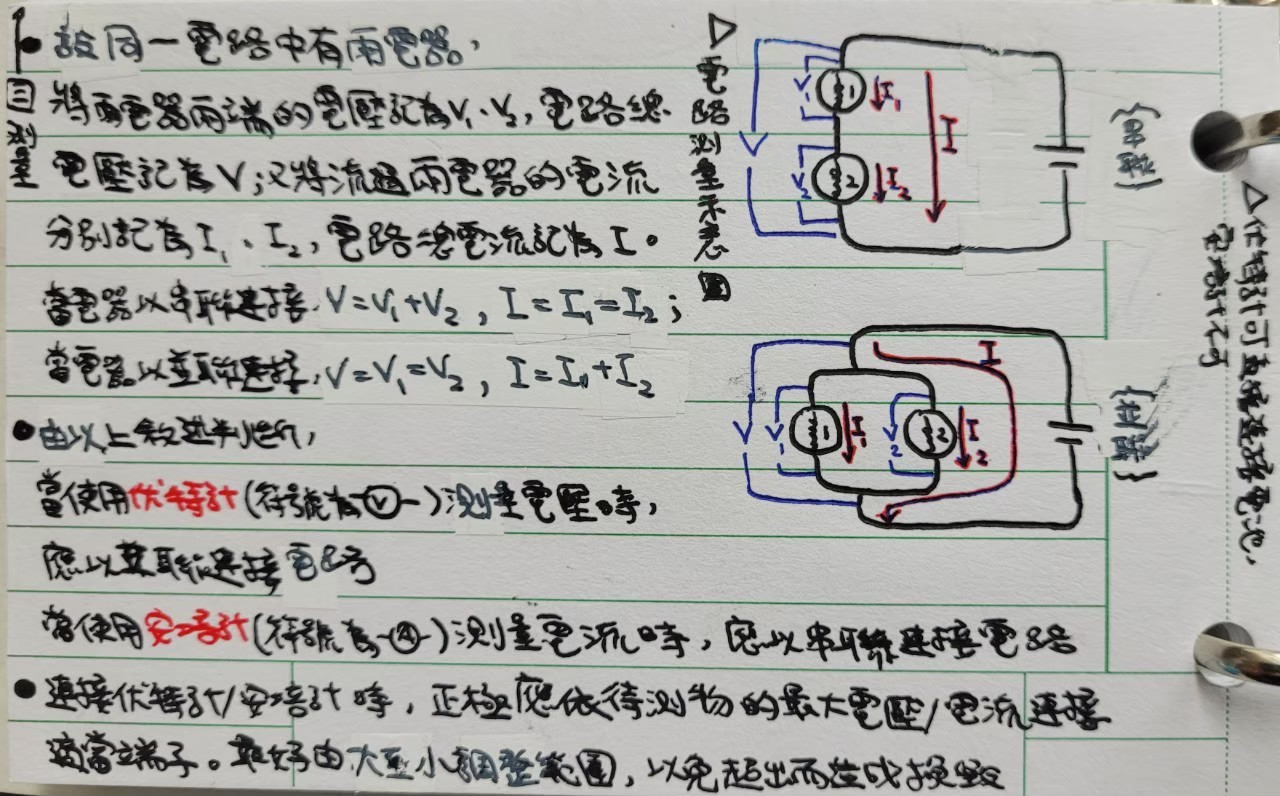 設同一電路中有兩電器，
三測量
將兩電器兩端的電壓記為V₁、V₂，電路總
電壓記為V；又將流過兩電器的電流
分別記為I₁、I₂，電路總電流記為I。
當電器以串聯連接，V=V₁+V₂，I=I₁=I₂；
當電器以並聯連接，V=V₁=V₂，I=I₁+I₂
由以上敘述判斷，
當使用伏特計(符號為-Ⓥ-)測量電壓時，
應以並聯連接電路
當使用安培計(符號為-Ⓐ-)測量電流時，應以串聯連接電路
連接伏特計/安培計時，正極應依待測物的最大電壓/電流連接
適當端子。最好由大至小調整範圍，以免超出而造成損毀
▷電路測量示意圖
V
V₁
1
I₁
I
V₂
2
I₂
{串聯}
I
V
V₁
1
I₁
V₂
2
I₂
{並聯}
△伏特計可直接連接電池，
安培計不可